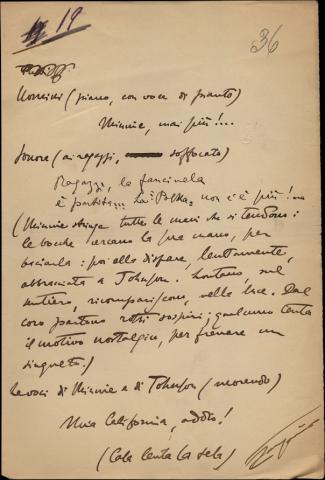 19
36
Uomini (piano, con voce di pianto)
Minnie, mai più!...
Sonora (ai ragazzi, soffocato)
Ragazzi, la fanciulla
è partita... La "Polka" non c'è più!
(Minnie stringe tutte le mani che si tendono:
le bocche cercano la sua mano, per
baciarla: poi ella dispare, lentamente,
abbracciata a Johnson. Lontano, sul
sentiero, ricompariscono, nella luce. Dal
coro partono rotti sospiri; qualcuno tenta
il motivo nostalgico, per frenare un
singulto.)
Le voci di Minnie e di Johnson (morendo)
Mia California, addio!
(Cala lenta la tela)